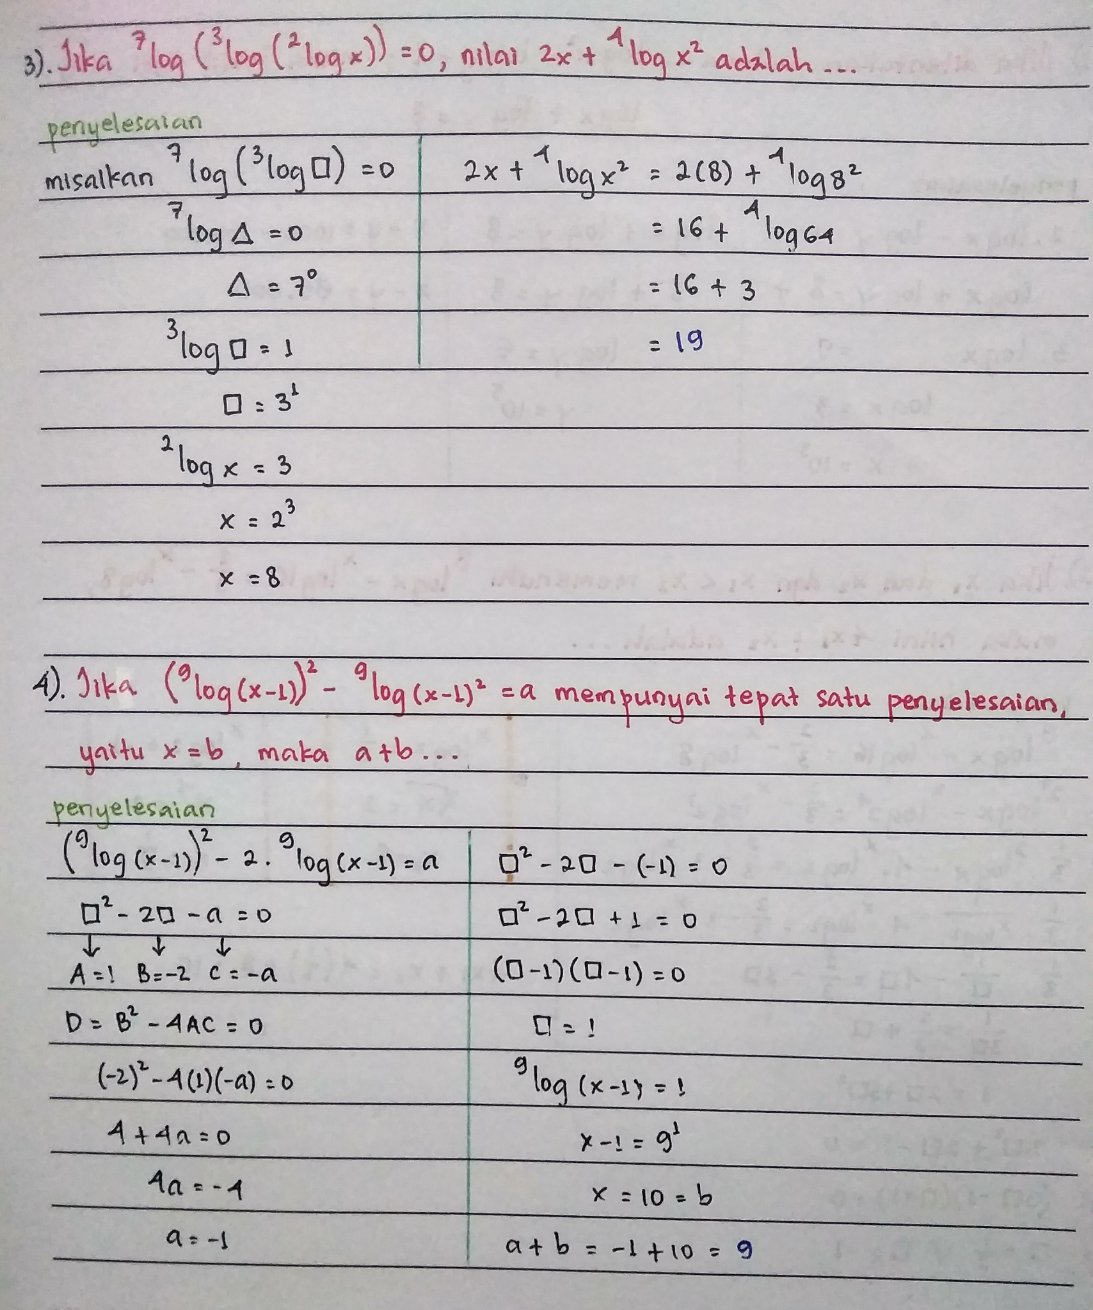 3). Jika ⁷log(³log(²log x)) = 0, nilai 2x + ⁴log x² adalah ...
penyelesaian
misalkan ⁷log(³log □) = 0
⁷log △ = 0
△ = 7⁰
³log □ = 1
□ = 3¹
²log x = 3
x = 2³
x = 8
2x + ⁴log x² = 2(8) + ⁴log 8²
= 16 + ⁴log 64
= 16 + 3
= 19
4). Jika (⁹log(x-1))² - ⁹log(x-1)² = a mempunyai tepat satu penyelesaian,
yaitu x = b, maka a+b ...
penyelesaian
(⁹log(x-1))² - 2 . ⁹log(x-1) = a
□² - 2□ - a = 0
↓ ↓ ↓
A = 1 B = -2 C = -a
D = B² - 4AC = 0
(-2)² - 4(1)(-a) = 0
4 + 4a = 0
4a = -4
a = -1
□² - 2□ - (-1) = 0
□² - 2□ + 1 = 0
(□-1)(□-1) = 0
□ = 1
⁹log(x-1) = 1
x-1 = 9¹
x = 10 = b
a + b = -1 + 10 = 9